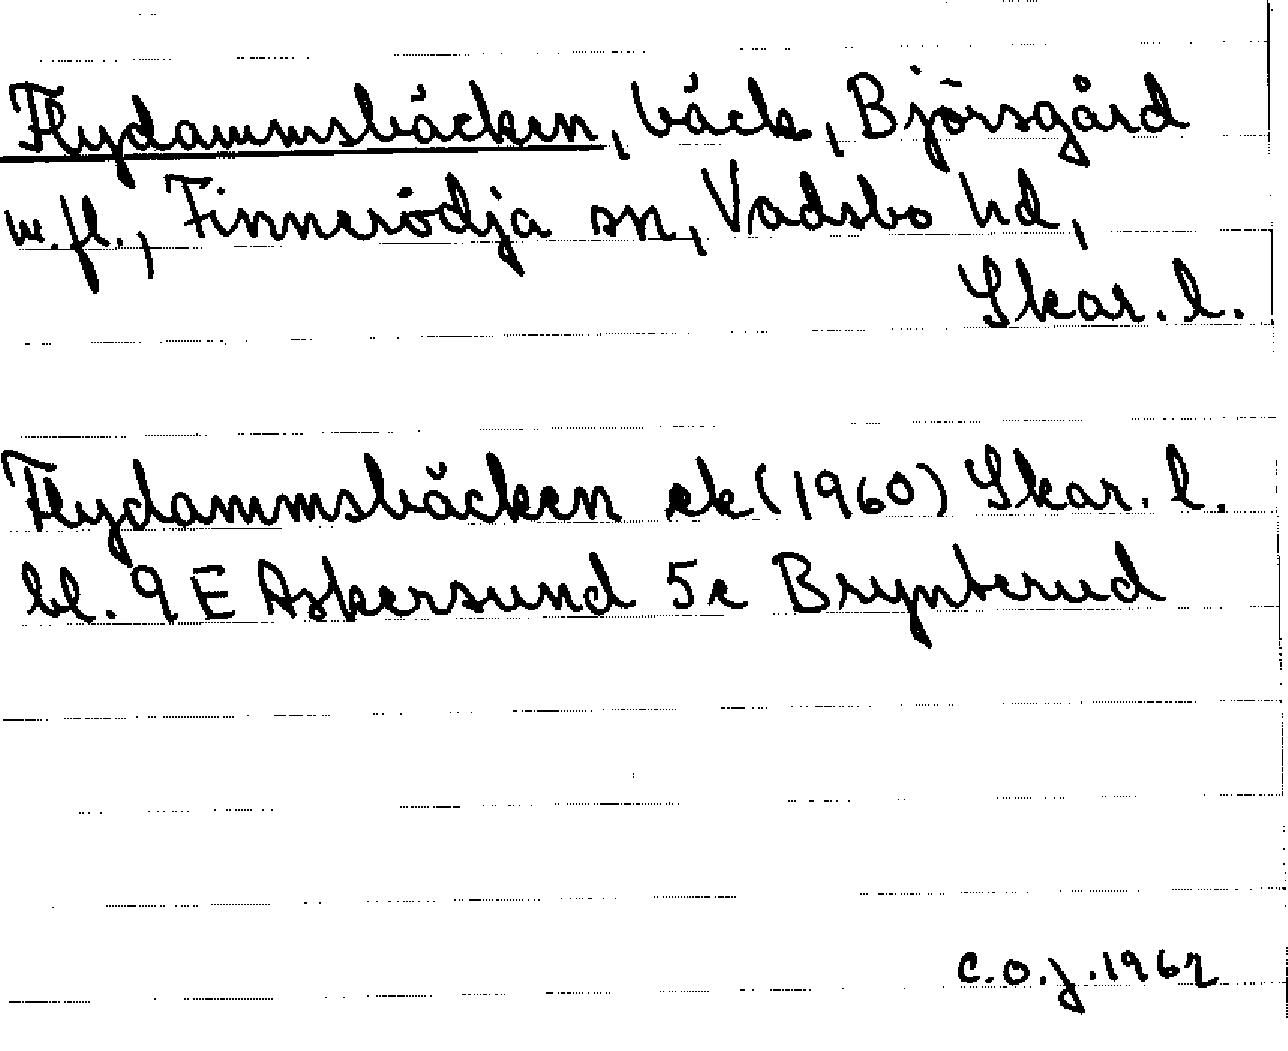 Flydammsbäcken, bäck, Björsgård
m.fl., Finnerödja sn, Vadsbo hd,
Skar. l.
Flydammsbäcken ek (1960) Skar. l.
bl. 9 E Askersund 5c Brynterud
C.O.J. 1962